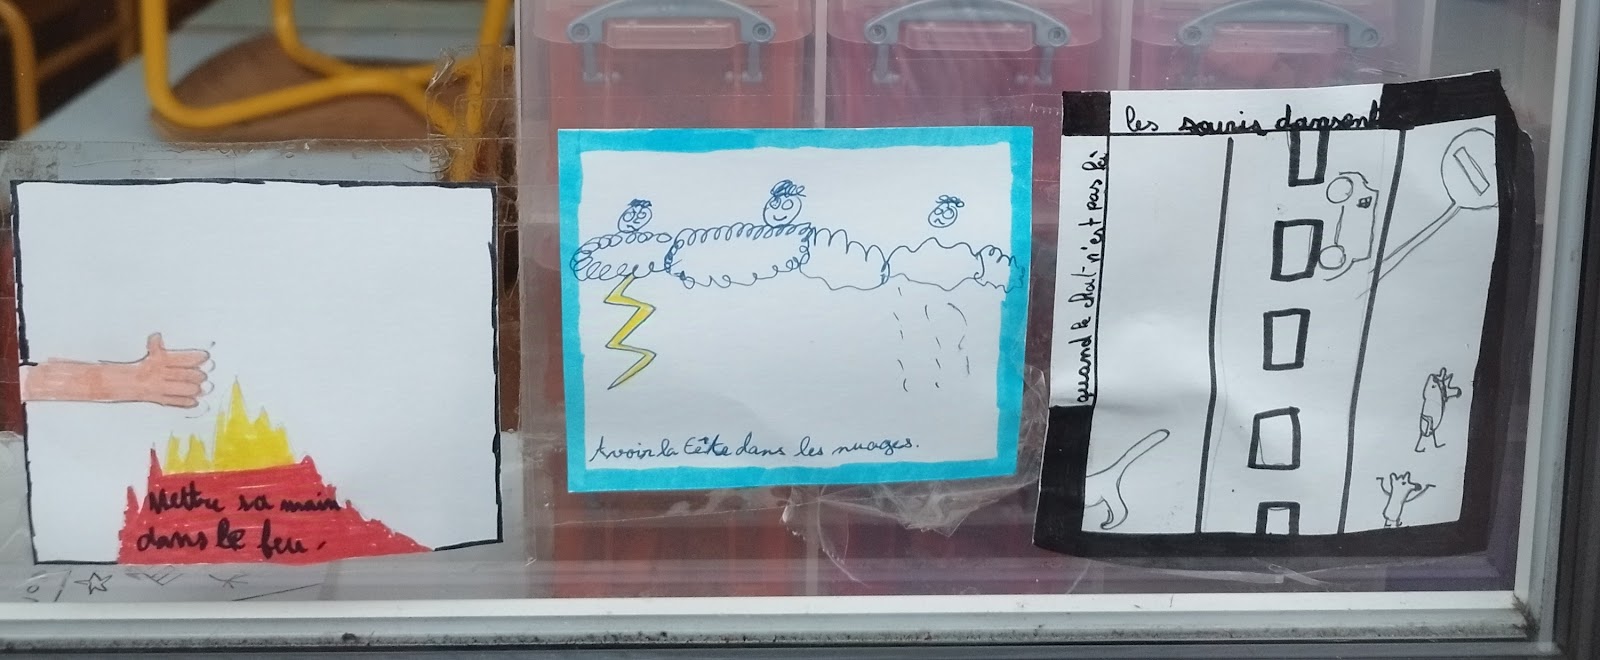 Mettre sa main
dans le feu.
Avoir la tête dans les nuages.
quand le chat n'est pas là
les souris dansent